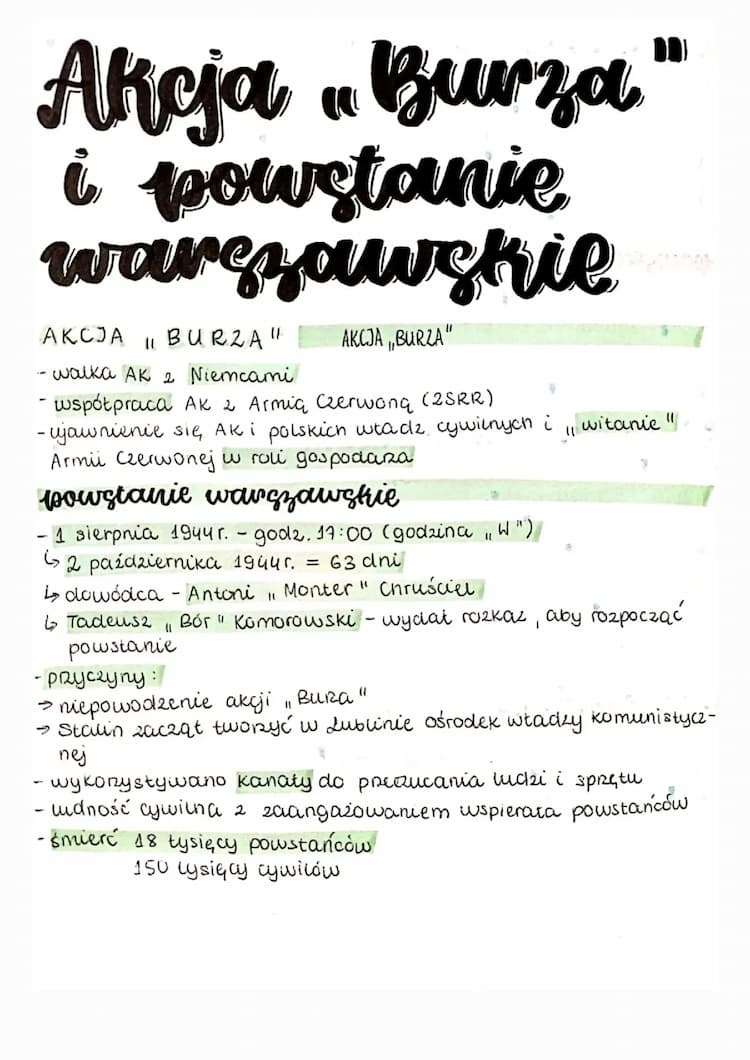 Akcja „Burza"
i powstanie
warszawskie
AKCJA „BURZA" AKCJA „BURZA"
- walka AK z Niemcami
- współpraca AK z Armią Czerwoną (ZSRR)
- ujawnienie się AK i polskich władz cywilnych i „witanie"
Armii Czerwonej w roli gospodarza
powstanie warszawskie
- 1 sierpnia 1944r. - godz. 17:00 (godzina „W")
↳ 2 października 1944r. = 63 dni
↳ dowódca - Antoni „Monter" Chruściel
↳ Tadeusz „Bór" Komorowski - wydał rozkaz, aby rozpocząć
powstanie
- przyczyny:
→ niepowodzenie akcji „Burza"
→ Stalin zaczął tworzyć w Lublinie ośrodek władzy komunistycz-
nej
- wykorzystywano kanały do przerzucania ludzi i sprzętu
- ludność cywilna z zaangażowaniem wspierała powstańców
- śmierć 18 tysięcy powstańców
150 tysięcy cywilów